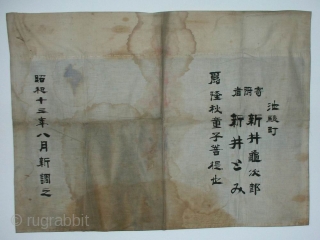 油縣町
寄附者 新井龜次郎
新井とみ
爲隆秋童子菩提也
昭和十三年八月新調之
© rugrabbit